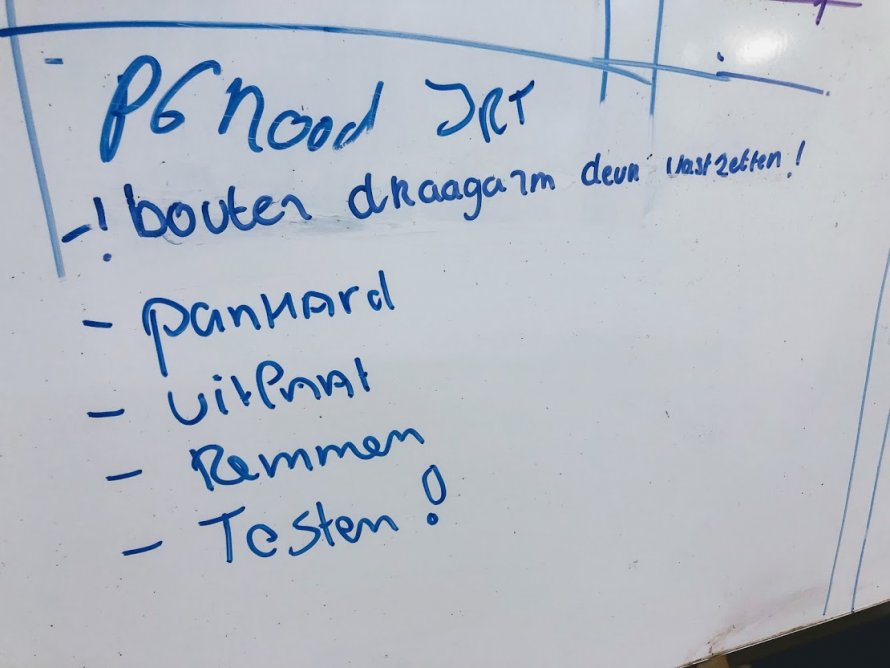 PG Nood JRT
-! bouten draagarm deur vastzetten!
- panHArd
- uitlAAt
- Remmen
- Testen!